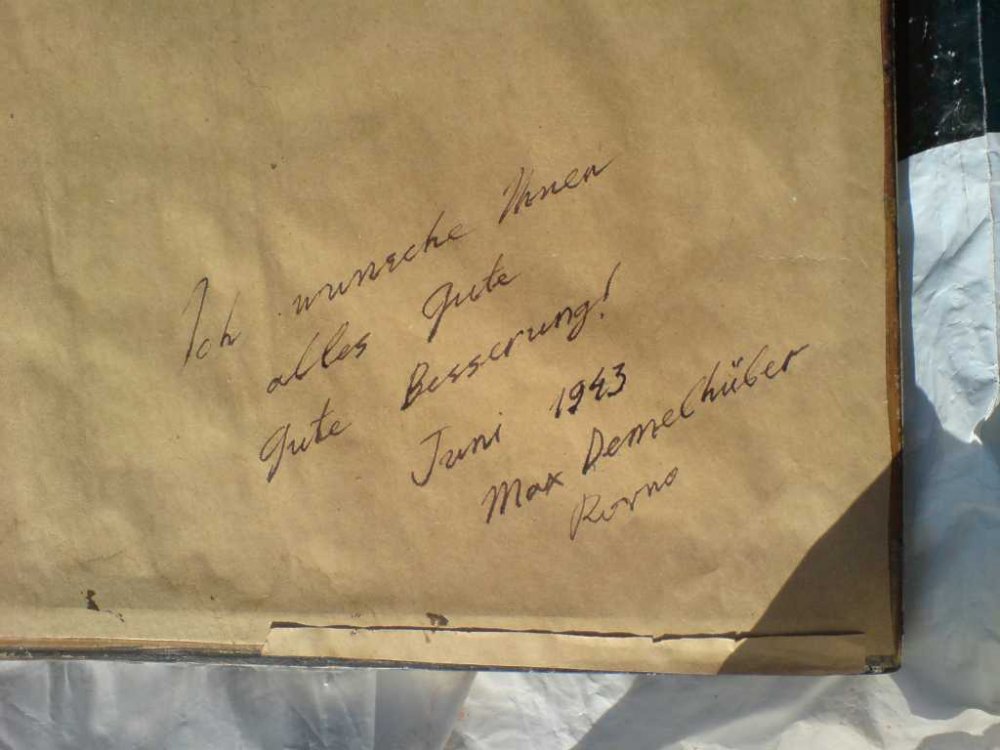 Ich wunsche Ihnen
alles gute
gute Besserung!
Juni 1943
Max Demelhüber
Rovno